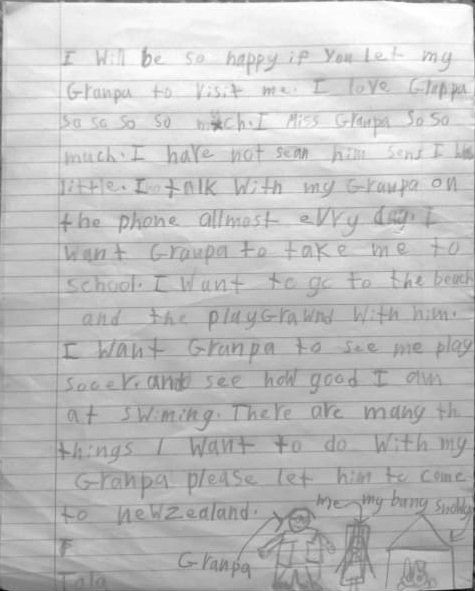 I Will be so happy if You let my
Granpa to visit me. I love Grappa
So so so so much. I Miss Granpa So So
much. I have not sean him sens I
little. I talk with my Granpa on
the phone allmost evry day. I
want Granpa to take me to
school. I Want to go to the beach
and the playGrawnd With him.
I Want Granpa to see me play
socer. and see how good I am
at swiming. There are many th
things I want to do with my
Granpa please let him to come
to newzealand.
me my buny
Granpa
Tala